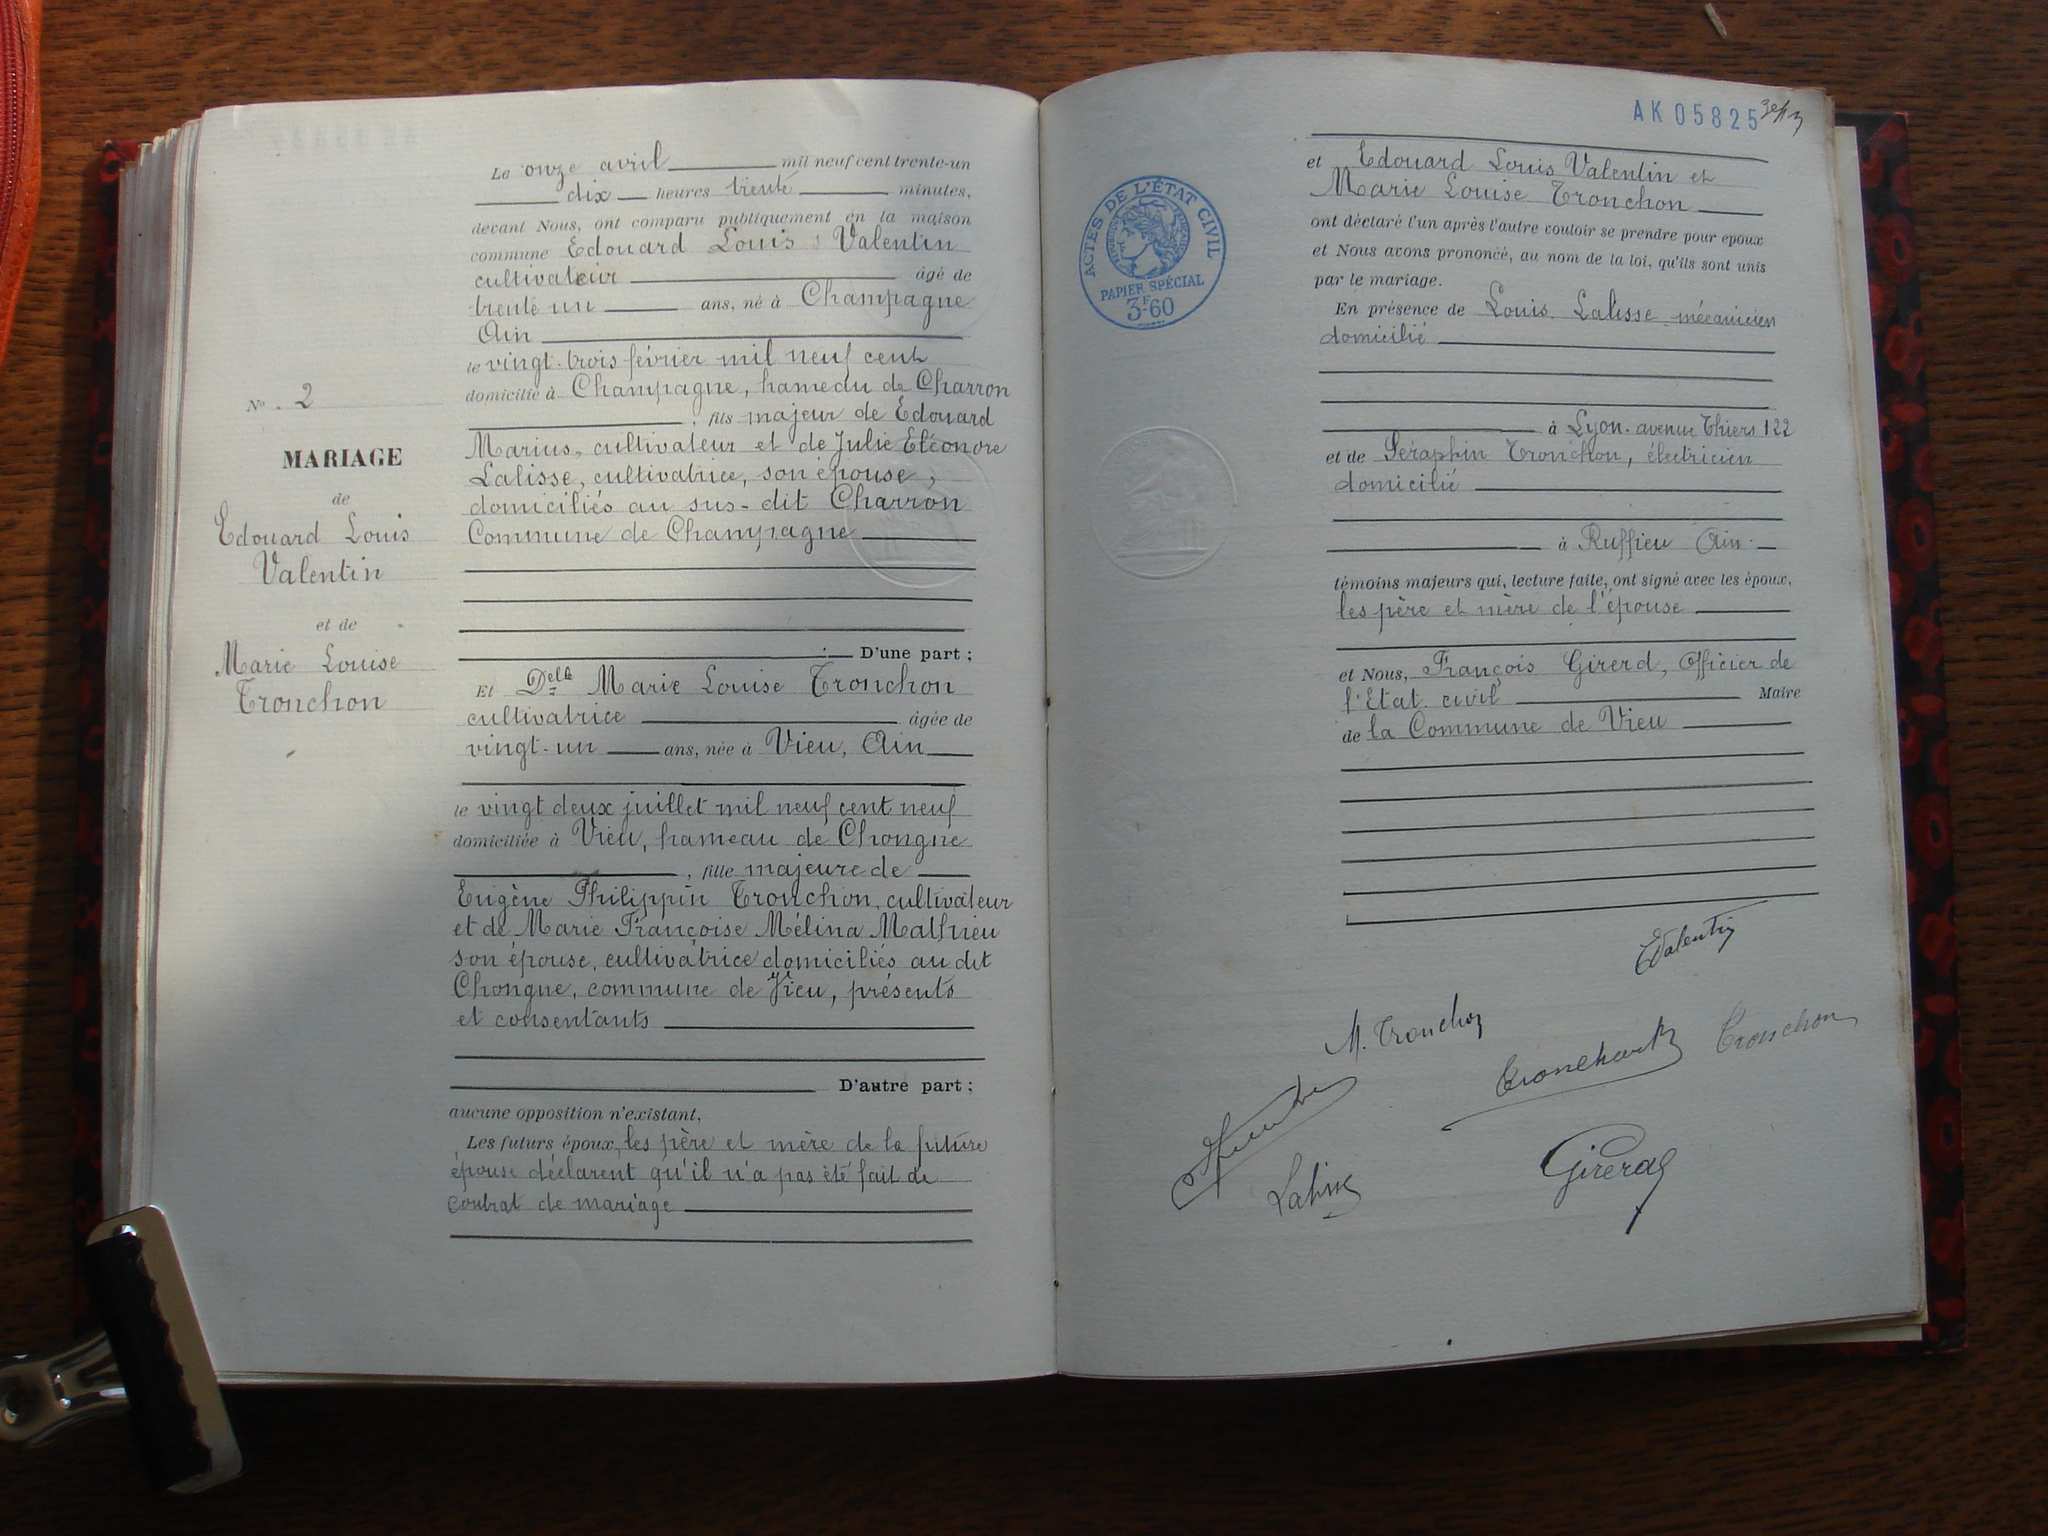 No. 2
MARIAGE
de
Edouard Louis
Valentin
et de
Marie Louise
Tronchon
Le onze avril mil neuf cent trente-un
dix heures trente minutes,
devant Nous, ont comparu publiquement en la maison
commune Edouard Louis Valentin
cultivateur âgé de
trente un ans, né à Champagne
Ain
le vingt-trois février mil neuf cent
domicilié à Champagne, hameau de Charron
, fils majeur de Edouard
Marius, cultivateur et de Julie Eléonore
Lalisse, cultivatrice, son épouse,
domiciliés au sus-dit Charron
Commune de Champagne
D'une part ;
Et Delle Marie Louise Tronchon
cultivatrice âgée de
vingt-un ans, née à Vieu, Ain
le vingt deux juillet mil neuf cent neuf
domiciliée à Vieu, hameau de Chongne
, fille majeure de
Eugène Philippin Tronchon, cultivateur
et de Marie Françoise Mélina Mathieu
son épouse, cultivatrice domiciliés au dit
Chongne, commune de Vieu, présents
et consentants
D'autre part ;
aucune opposition n'existant,
Les futurs époux, les père et mère de la future
épouse déclarent qu'il n'a pas été fait de
contrat de mariage
AK 05825
ACTES DE L'ÉTAT CIVIL
PAPIER SPÉCIAL
3F60
et Edouard Louis Valentin et
Marie Louise Tronchon
ont déclaré l'un après l'autre vouloir se prendre pour époux
et Nous avons prononcé, au nom de la loi, qu'ils sont unis
par le mariage.
En présence de Louis Lalisse mécanicien
domicilié
à Lyon. avenue Thiers 122
et de Séraphin Tronchon, électricien
domicilié
à Ruffieu Ain
témoins majeurs qui, lecture faite, ont signé avec les époux,
les père et mère de l'épouse
et Nous, François Girerd, Officier de
l'Etat civil Maire
de la Commune de Vieu
EValentin
M. Tronchon
Tronchon
Girerd